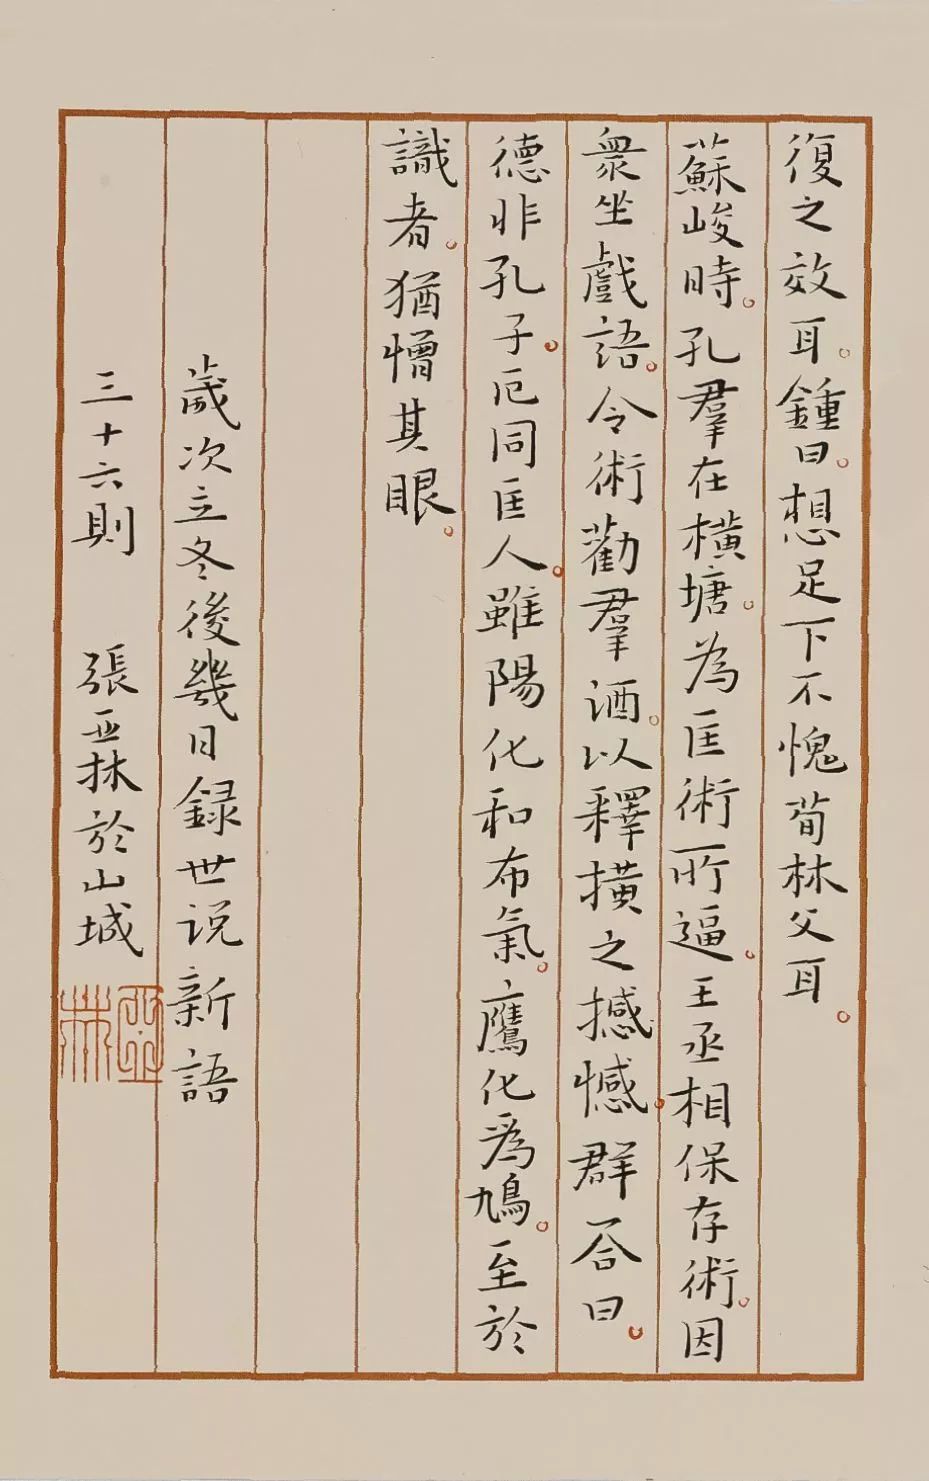 復之效耳。鍾曰。想足下不愧荀林父耳。
蘇峻時。孔羣在橫塘。為匡術所逼。王丞相保存術。因
衆坐戲語。令術勸羣酒。以釋橫之撼憾。群荅曰。
德非孔子。厄同匡人。雖陽化和布氣。鷹化爲鳩。至於
識者。猶憎其眼。
歲次立冬後幾日録世说新語
三十六則 張亞林於山城
亞林